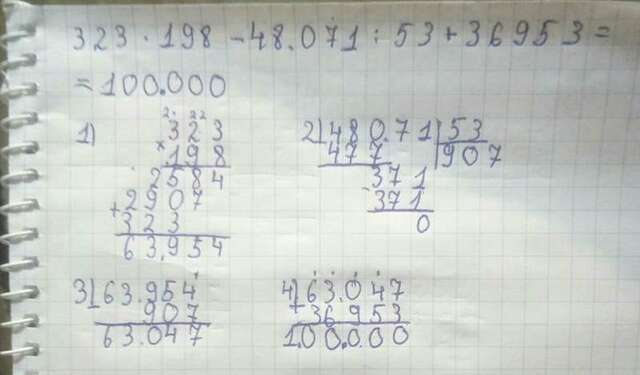 323 · 198 - 48.071 : 53 + 36953 =
= 100.000
1)
2· 22
323
×
198
2584
+2907
323
63.954
2) 48071 | 53
477 | 907
-371
371
0
3) -63.954
907
63.047
4) +63.047
36953
100.000